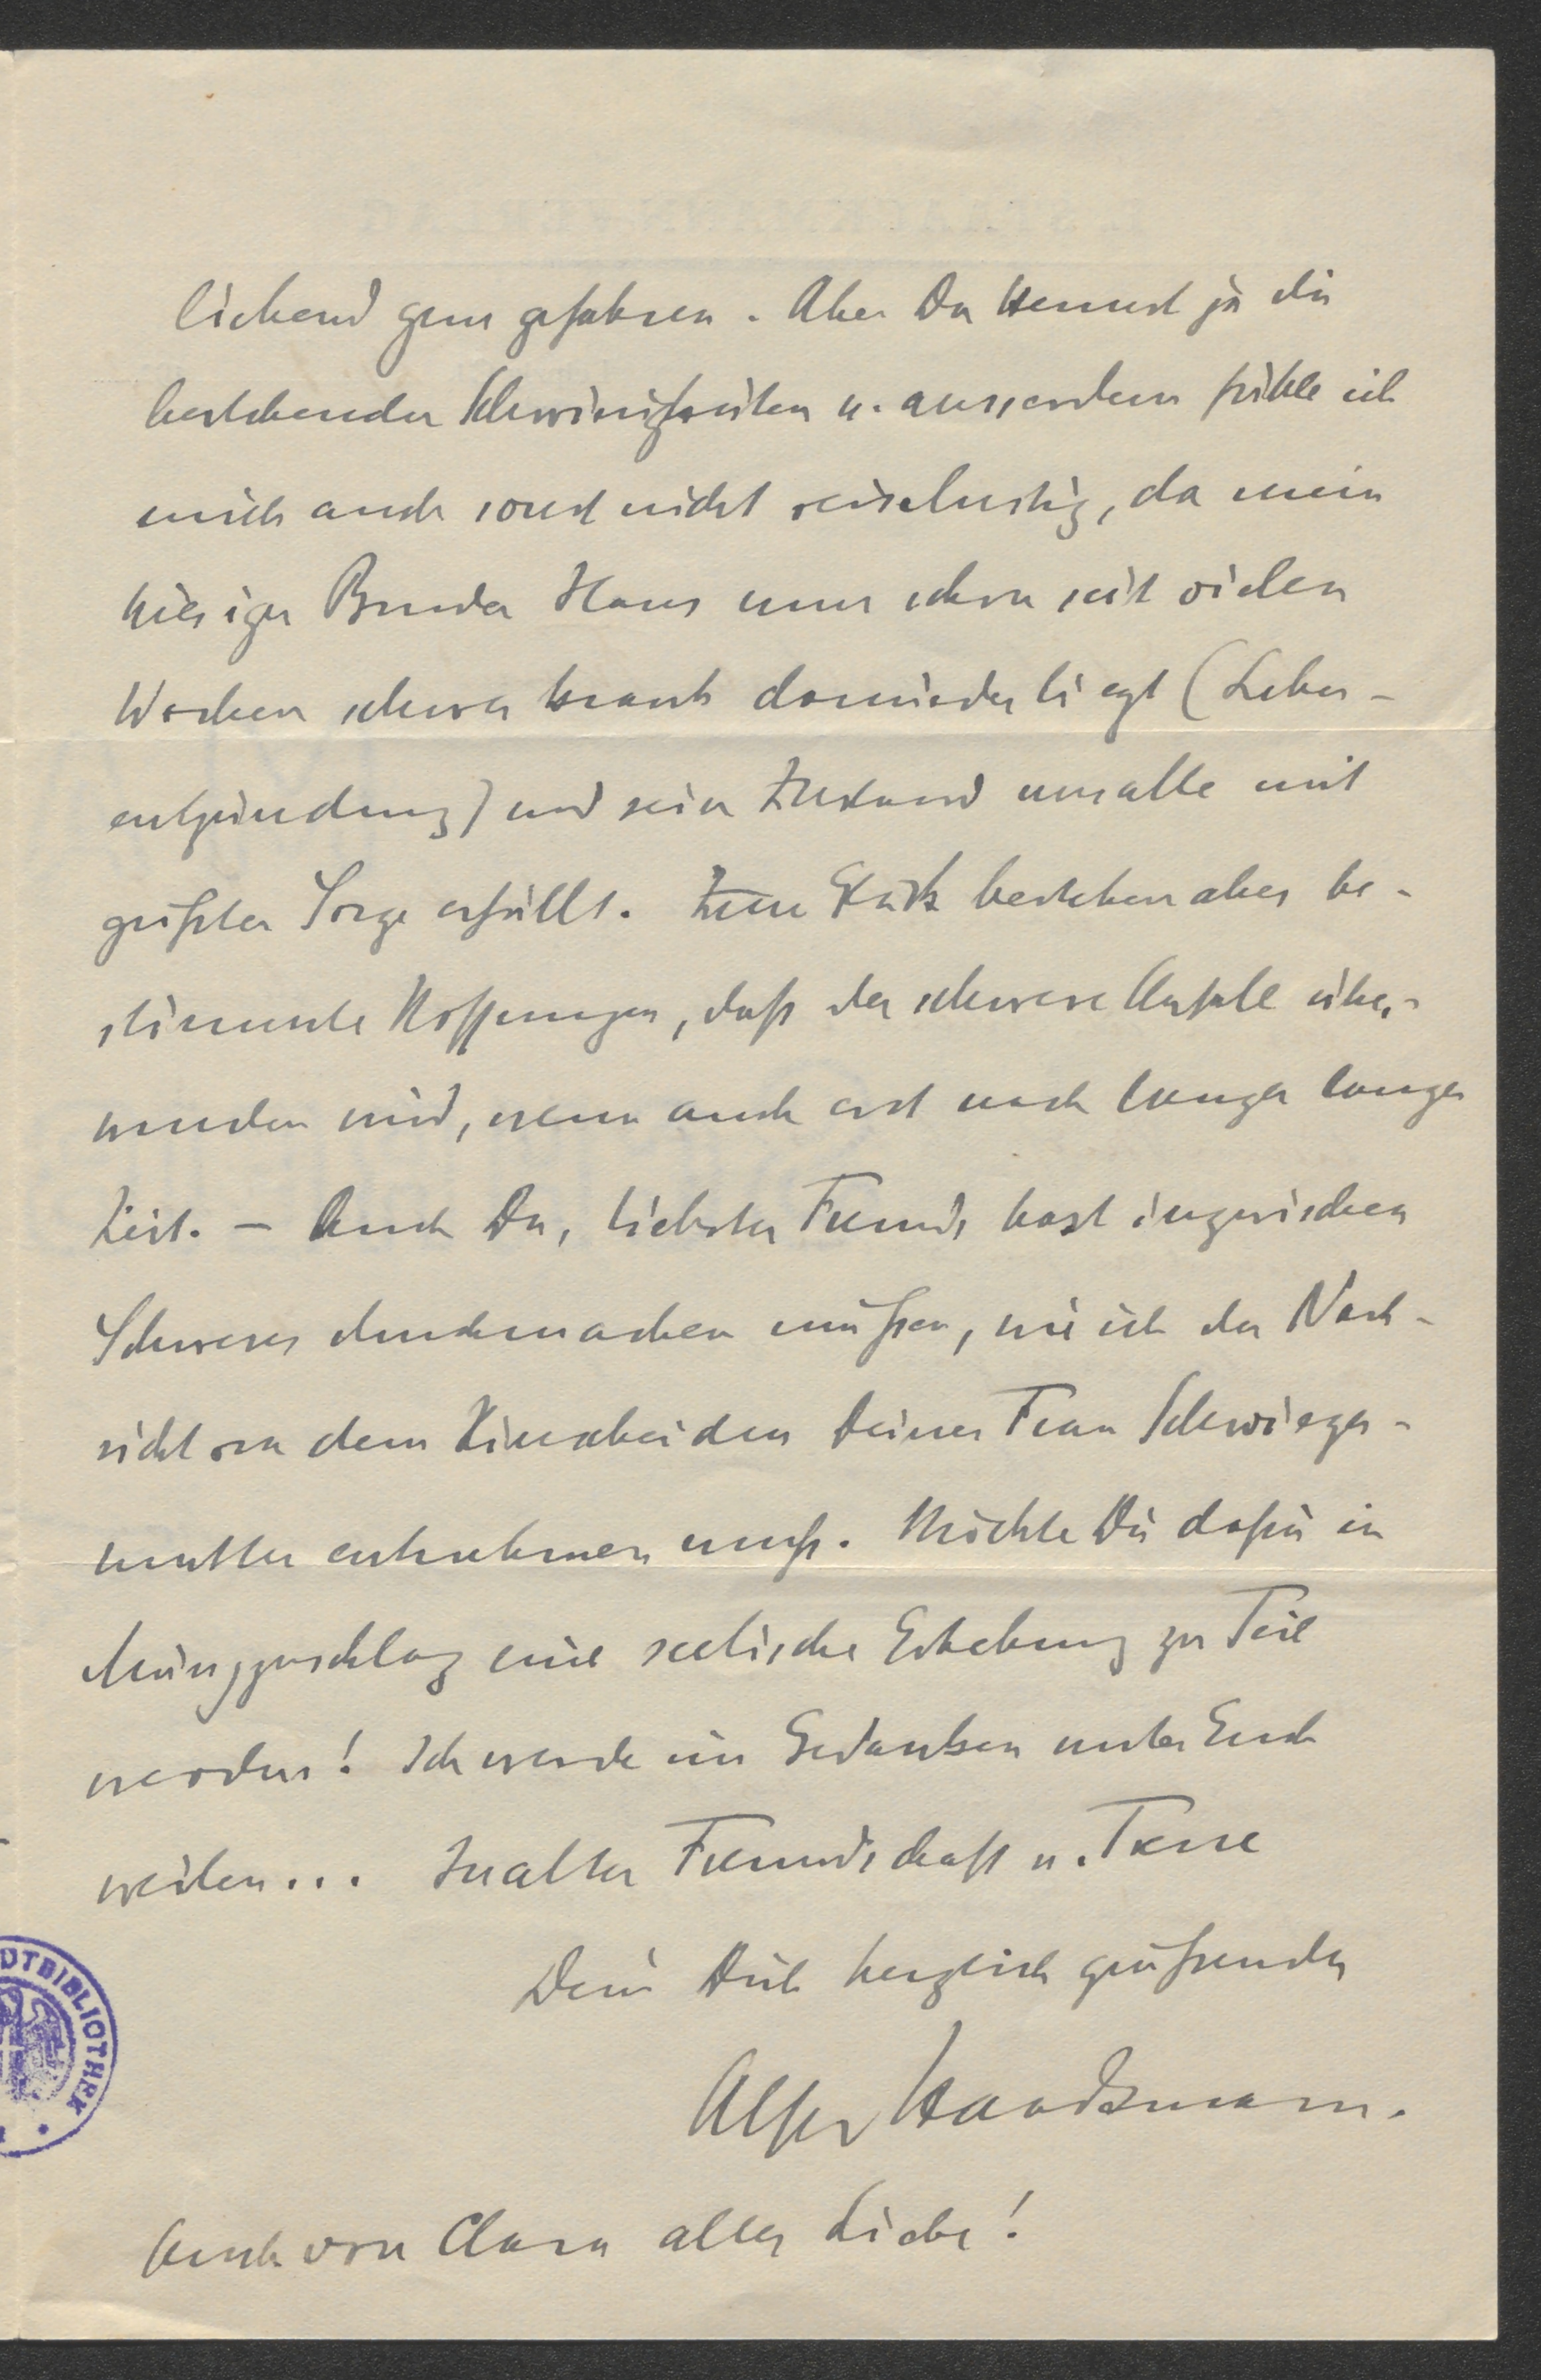 liebend gern gefahren. Aber Du kennst ja die
bestehenden Schwierigkeiten u. ausserdem fühle ich
mich auch sonst nicht reiselustig, da mein
hiesiger Bruder Hans nun schon seit vielen
Wochen schwer krank darniederliegt (Leber-
entzündung) und sein Zustand uns alle mit
größter Sorge erfüllt. Zum Glück bestehen aber be-
stimmte Hoffnungen, daß der schwere Anfall über-
wunden wird, wenn auch erst nach langer langer
Zeit. – Auch Du, liebster Freund, hast inzwischen
Schweres durchmachen müßen, wie ich der Nach-
richt von dem Hinscheiden Deiner Frau Schwieger-
mutter entnehmen muß. Möchte Dir dafür in
Mürzzuschlag eine seelische Erhebung zu Teil
werden! Ich werde im Gedanken unter Euch
weilen... In alter Freundschaft u. Treue
Dein Dich herzlich grüßender
Alfr Staackmann.
Auch von Clara alles Liebe!
DTBIBLIOTHEK